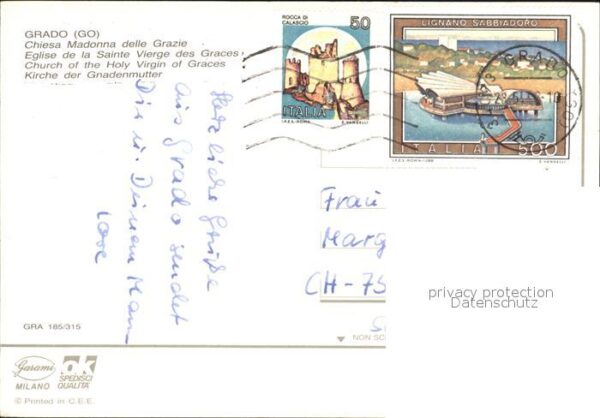 GRADO (GO)
Chiesa Madonna delle Grazie
Eglise de la Sainte Vierge des Graces
Church of the Holy Virgin of Graces
Kirche der Gnadenmutter
ROCCA DI
CALASCIO
50
ITALIA
I.P.Z.S.-ROMA E. VANGELLI
LIGNANO SABBIADORO
ITALIA 500
I.P.Z.S.-ROMA E. VANGELLI
GRADO
Herzliche Grüße
aus Grado sendet
Dir u. Deinem Mann
Frau
Marg
CH-75
privacy protection
Datenschutz
NON SC
GRA 185/315
Garami
MILANO
ok
SPEDISCI
QUALITÀ
© Printed in C.E.E.